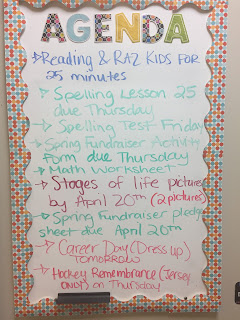 AGENDA
→Reading & RAZ KIDS FOR
25 minutes
→Spelling Lesson 25
due Thursday
→Spelling Test Friday
→Spring Fundraiser Activity
form due Thursday
→Math Worksheet
→Stages of life pictures
by April 20th (2 pictures)
→Spring Fundraiser pledge
sheet due April 20th
→Career Day (Dress up)
TOMORROW
→Hockey Remembrance (Jersey
on Thursday